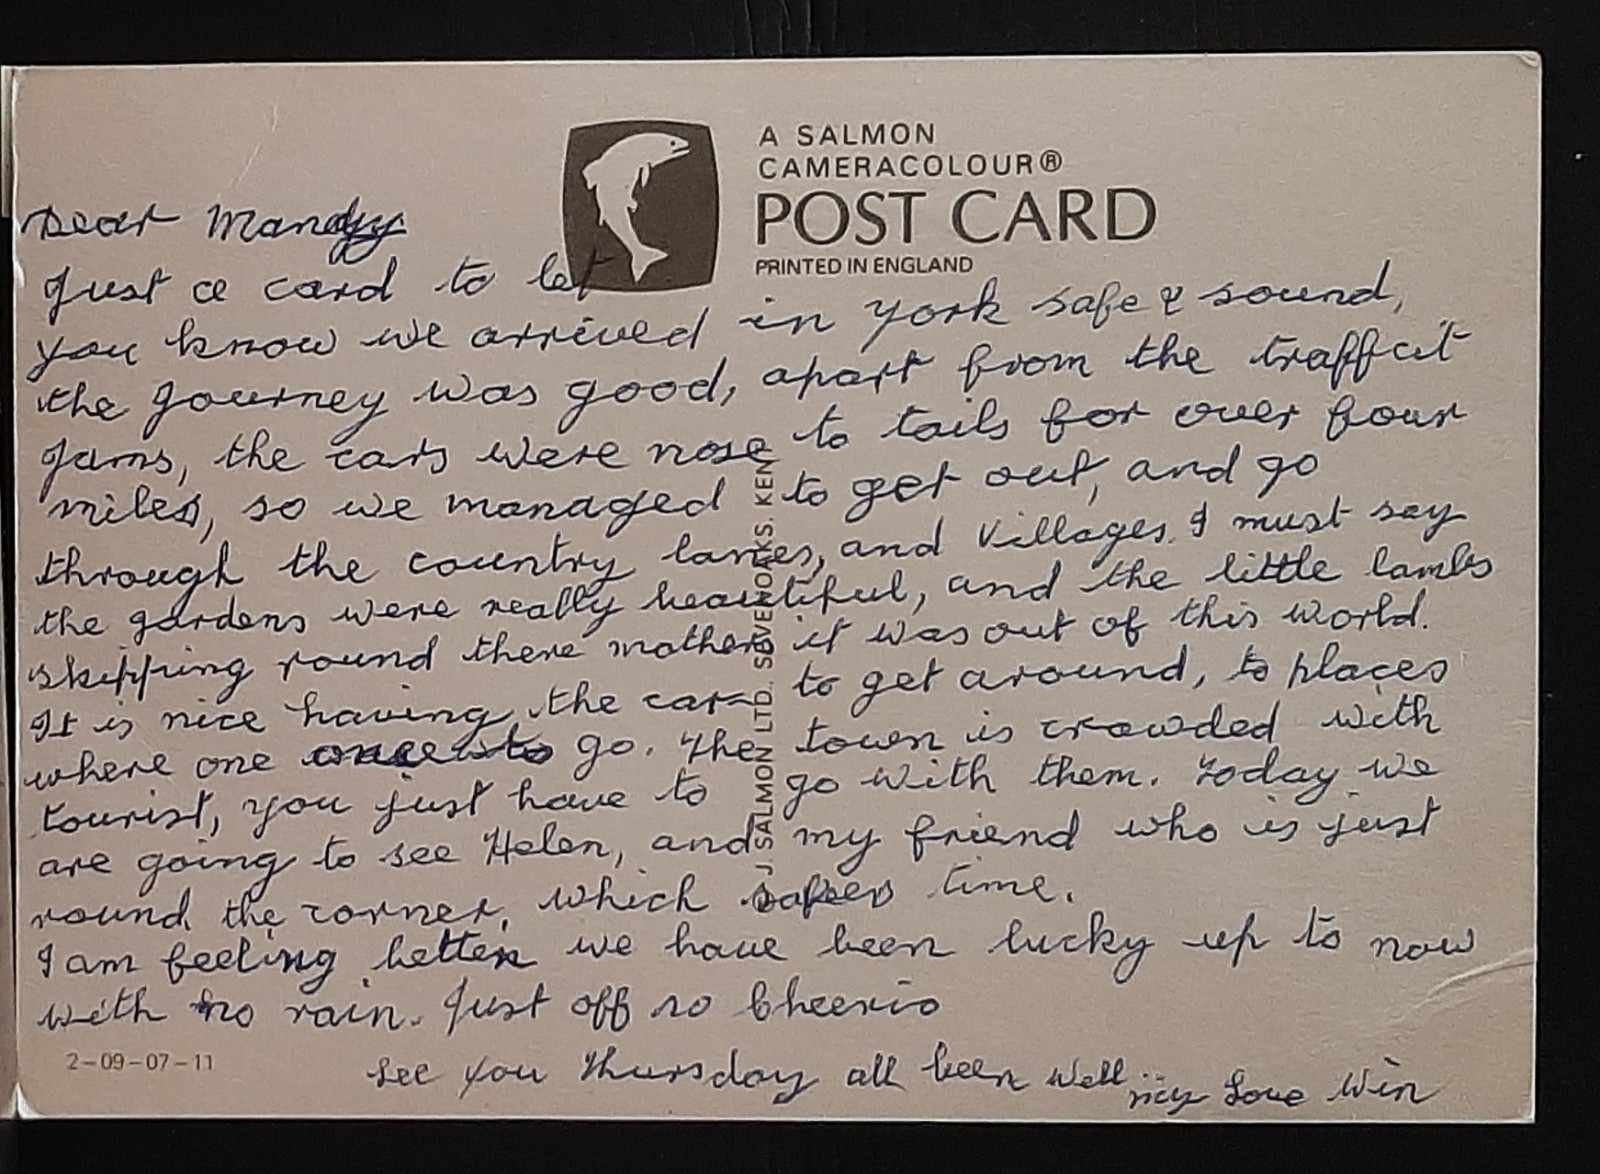 A SALMON
CAMERACOLOUR®
POST CARD
PRINTED IN ENGLAND
Dear Mandy
Just a card to let
you know we arrived in York safe & sound,
the journey was good, apart from the traffcit
jams, the cars were nose to tails for over four
miles, so we managed to get out, and go
through the country lanes, and Villages. I must say
the gardens were really beautiful, and the little lambs
skipping round there mothers it was out of this world.
It is nice having the car to get around, to places
where one go. The town is crowded with
tourist, you just have to go with them. Today we
are going to see Helen, and my friend who is just
round the corner, which time.
I am feeling better we have been lucky up to now
with no rain. Just off so Cheerio
See you Thursday all been well
Love Win
2-09-07-11
J. SALMON LTD. SEVENOAKS. KENT